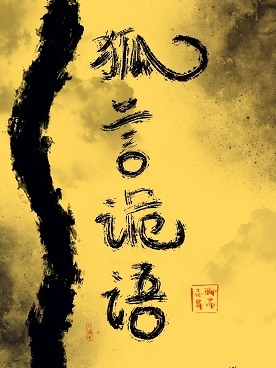 狐言诡语